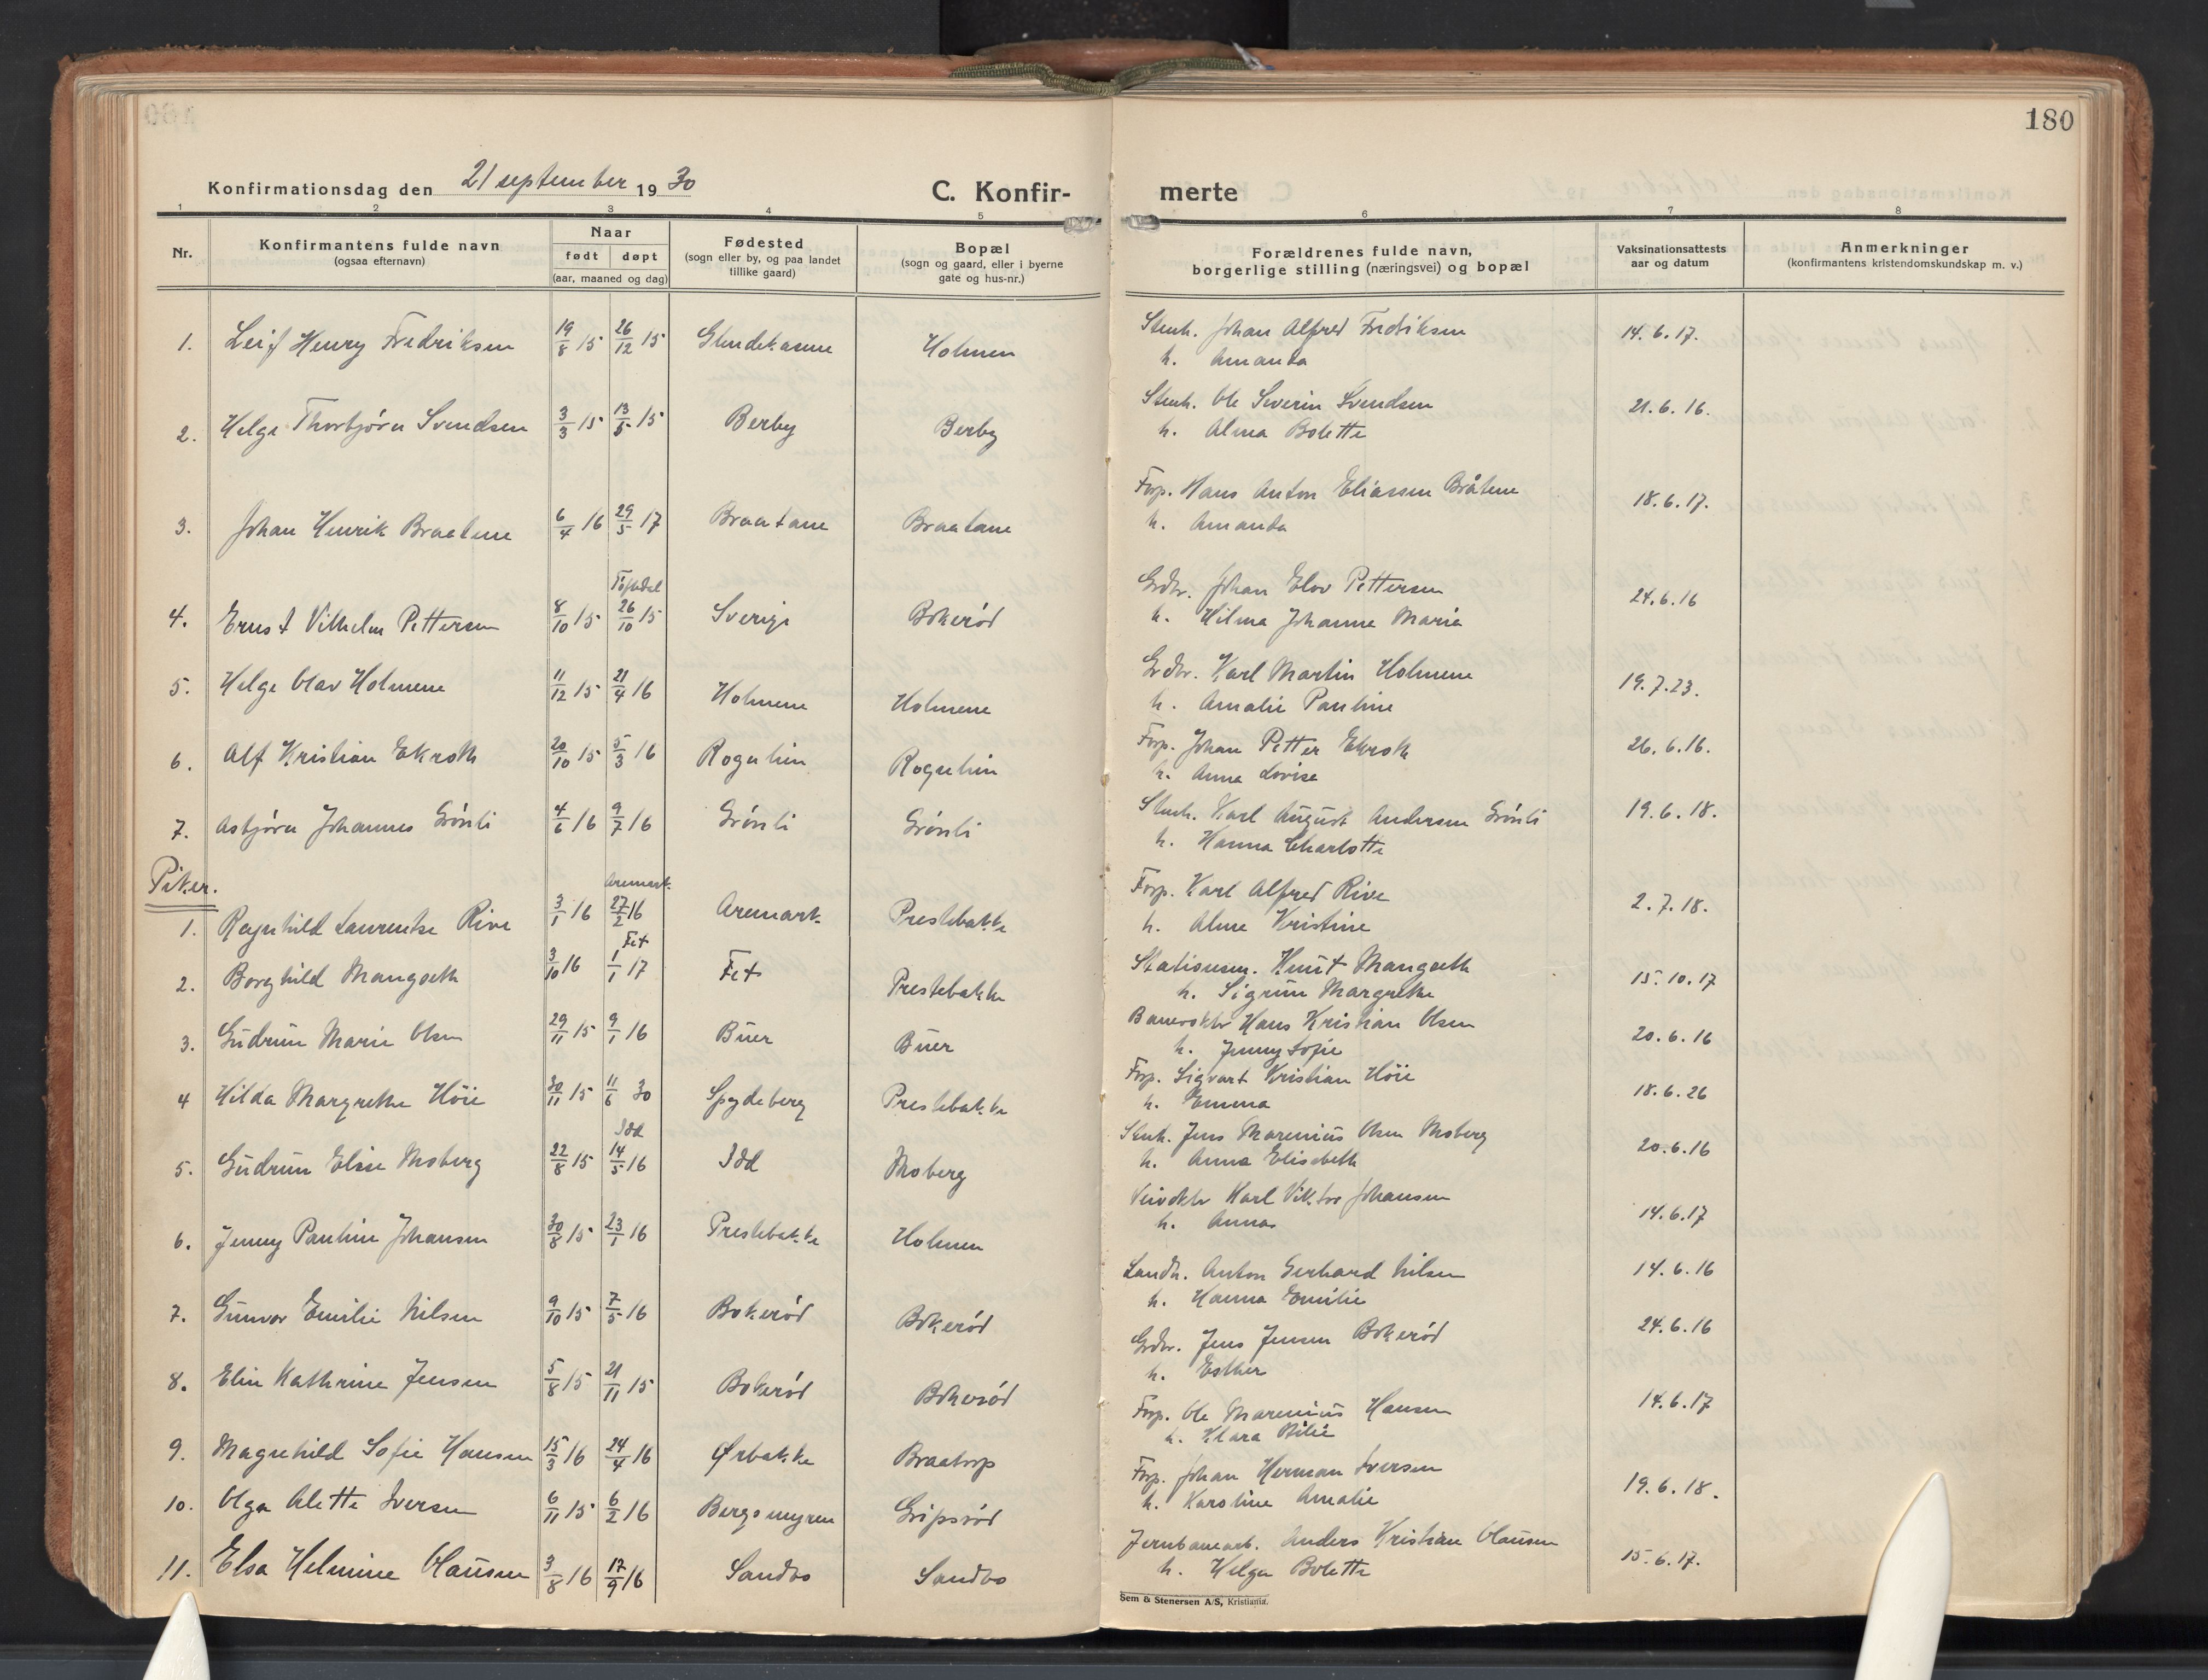 180
Konfirmationsdag den 21 september 1930
C. Konfirmerte
1 2 3 4 5 6 7 8
Nr.
Konfirmantens fulde navn
(ogsaa efternavn)
Naar
født døpt
(aar, maaned og dag)
Fødested
(sogn eller by, og paa landet
tillike gaard)
Bopæl
(sogn og gaard, eller i byerne
gate og hus-nr.)
Forældrenes fulde navn,
borgerlige stilling (næringsvei) og bopæl
Vaksinationsattests
aar og datum
Anmerkninger
(konfirmantens kristendomskundskap m. v.)
1. Leif Henry Fredriksen 19/8 15 26/12 15 Holmen Stenh. Johan Alfred Fredriksen 14.6.17.
h. Amanda
2. Helge Thorbjörn Svendsen 3/3 15 13/5 15 Berby Berby Stenh. Ole Severin Svendsen 21.6.16.
h. Alma Bolette
3. Johan Henrik Braatene 6/4 16 29/5 17 Braatane Braatane Forp. Hans Anton Eliassen Bråtene 18.6.17.
h. Amanda
4. Ernst Vilhelm Pettersen 8/10 15 26/10 15 Sverige Bokeröd Grdbr. Johan Elov Pettersen 24.6.16
h. Hilma Johanne Marie
5. Helge Olav Holmene 11/12 15 21/4 16 Holmene Holmene Grdbr. Karl Martin Holmene 19.7.23.
h. Amalie Pauline
6. Alf Kristian Ekroth 20/10 15 5/3 16 Rogulin Forp. Johan Petter Ekroth 26.6.16.
h. Anna Lovise
7. Asbjörn Johannes Grönli 4/6 16 9/7 16 Grönli Grönli Stenh. Karl August Andersen Grönli 19.6.18.
h. Hanna Charlotte
Piker.
Aremark
1. Ragnhild Laurentse Rive 3/1 16 27/2 16 Aremark Prestebakke Forp. Karl Alfred Rive 2.7.18.
h. Alma Kristine
Fet
2. Borghild Mangseth 3/10 16 1/1 17 Fet Prestebakke Stationsm. Knut Mangseth 15.10.17
h. Sigrun Margrethe
3. Gudrun Marie Olsen 29/11 15 9/1 16 Buer Buer Banevoktr Hans Kristian Olsen 20.6.16
h. Jenny Sofie
4 Hilda Margrethe Höie 30/11 15 11/6 30 Spydeberg Prestebakke Forp. Sigvart Kristian Höie 18.6.26
h. Emma
Idd
5. Gudrun Elise Moberg 22/8 15 14/5 16 Idd Moberg Stenh. Jens Marenius Olsen Moberg 20.6.16
h. Anna Elisabeth
6. Jenny Pauline Johansen 30/8 15 23/1 16 Prestebakke Holmen Veivoktr Karl Viktor Johansen 14.6.17
h. Anna
7. Gunvor Emilie Nilsen 9/10 15 7/5 16 Bokeröd Bokeröd Landh. Anton Gerhard Nilsen 14.6.16
h. Hanna Emilie
8. Elin Kathrine Jensen 5/8 15 21/11 15 Bokeröd Bokeröd Grdbr. Jens Jensen Bokeröd 24.6.16
h. Esther
9. Magnhild Sofie Hansen 15/3 16 24/4 16 Ørbakke Braatorp Forp. Ole Marenius Hansen 14.6.17
h. Klara
10. Olga Alette Iversen 6/11 15 6/2 16 Bergsmyren Gripsröd Forp. Johan Herman Iversen 19.6.18.
h. Karoline Amalie
11. Elsa Helmine Olausen 3/8 16 17/9 16 Sandbo Sandbo Jernbanearb. Anders Kristian Olausen 15.6.17.
h. Helga Bolette
Sem & Stenersen A/S, Kristiania.